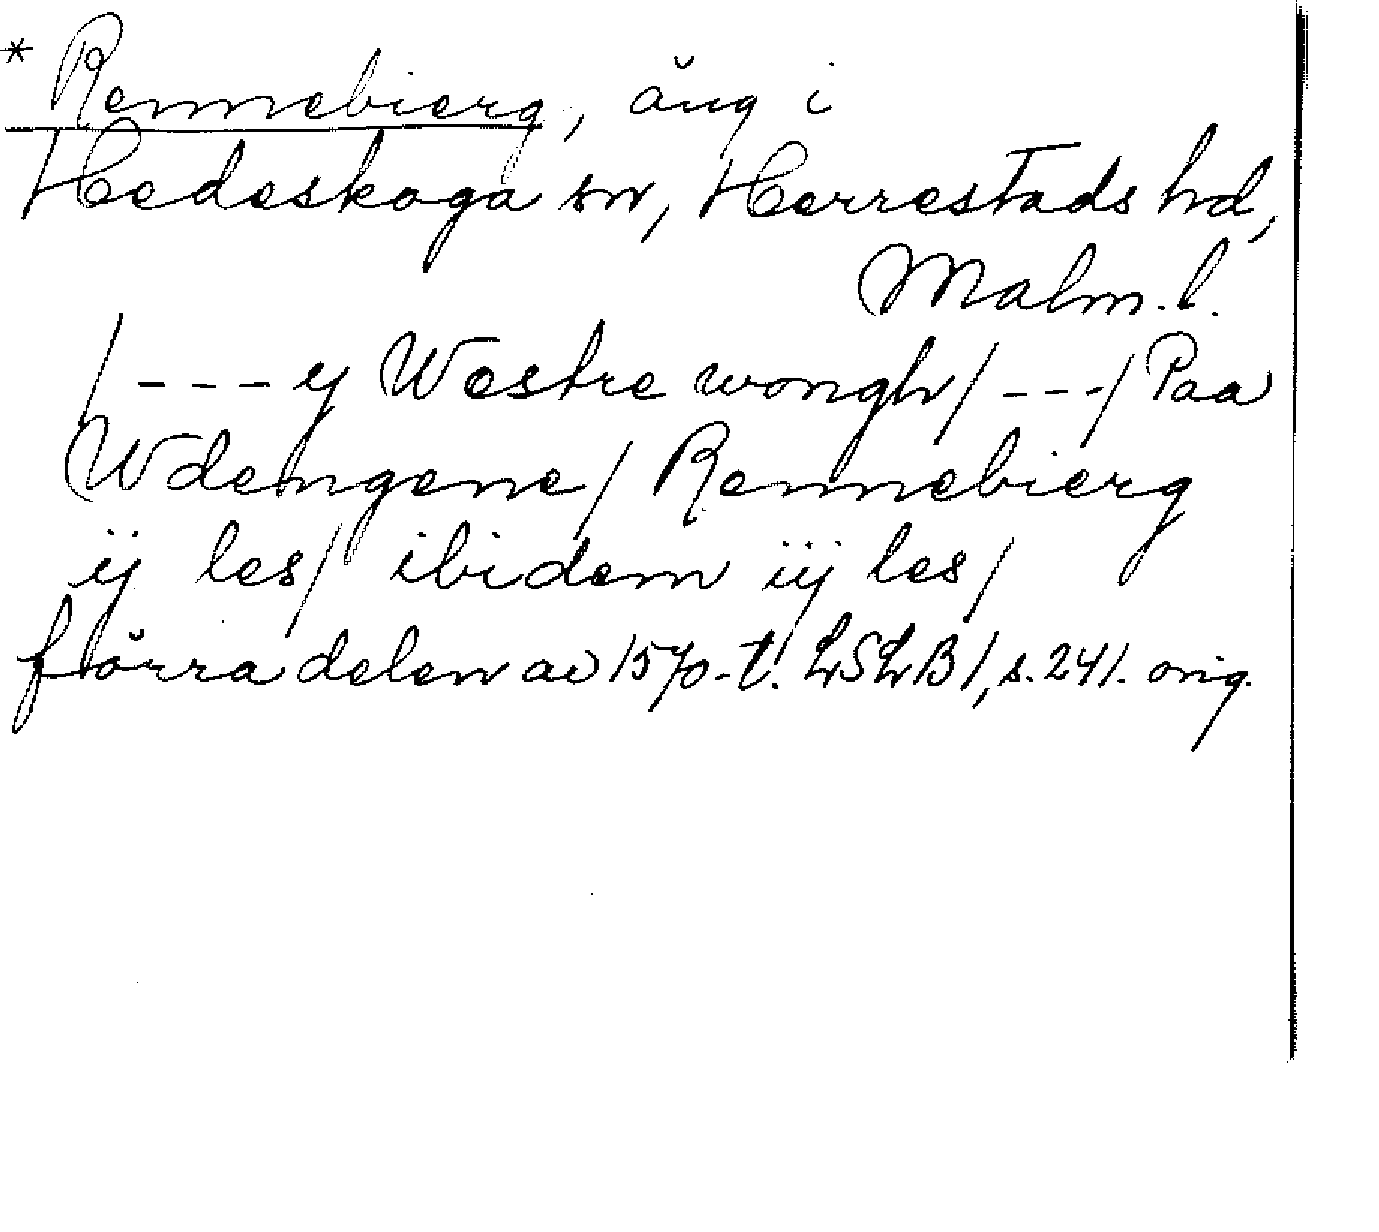 * Rennebierg, äng i
Hedeskoga sn, Herrestads hd,
Malm. l.
/ - - - y Westre wongh / - - - / Paa
Wdengene / Rennebierg
ij les / ibidem iij les /
förra delen av 1570-t. LSLB 1, s. 241. orig.